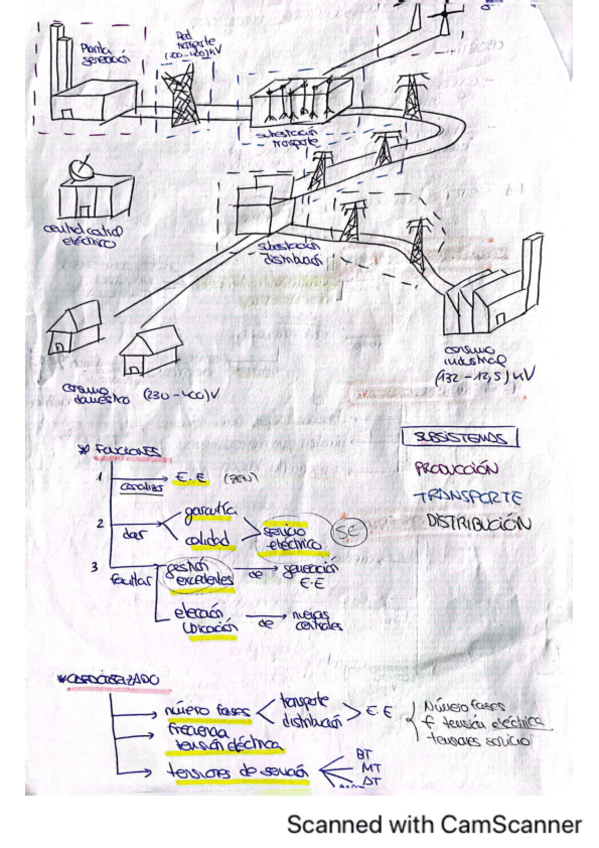 Planta
generación
Red
transporte
(220-400)kV
subestación
transporte
central control
eléctrico
subestación
distribución
consumo
doméstico (230-400)V
consumo
industrial
(132-12,5)kV
SUBSISTEMAS
PRODUCCIÓN
TRANSPORTE
DISTRIBUCIÓN
* FUNCIONES
1 canalizar E.E
2 dar garantía
calidad
servicio
eléctrico
SE
3 facilitar gestión
excedentes de generación
E.E
elección
ubicación de nuevas
centrales
número fases transporte
distribución E.E
Número fases
f tensión eléctrica
tensiones servicio
frecuencia
tensión eléctrica
tensiones de servicio
BT
MT
AT
Scanned with CamScanner